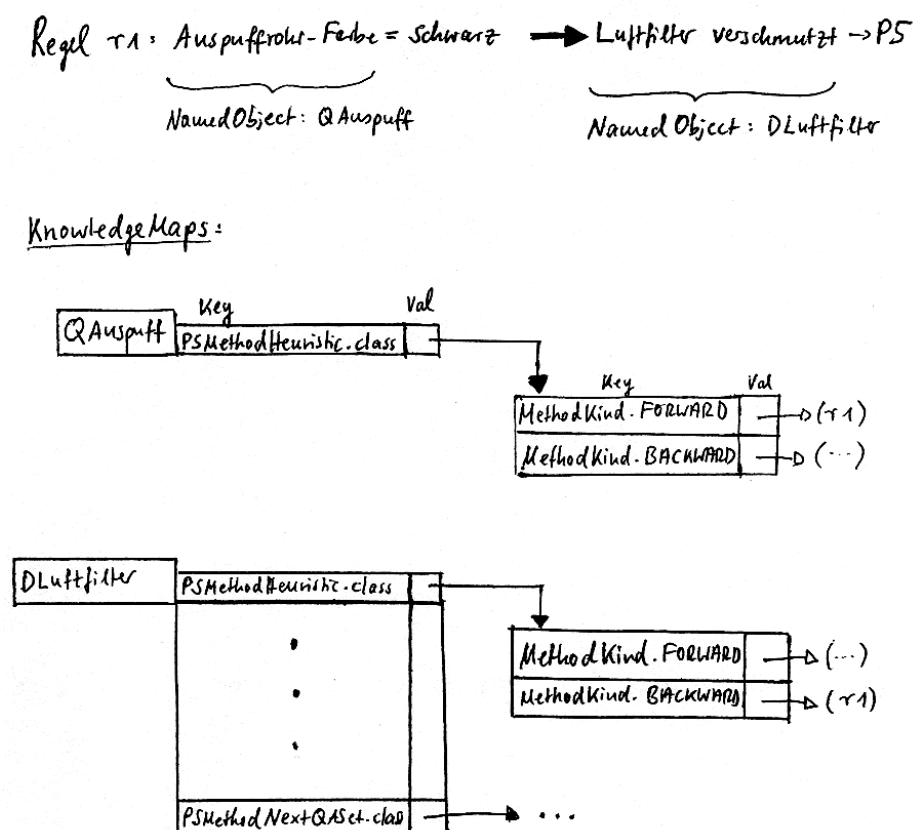 Regel r1: Auspuffrohr-Farbe = Schwarz → Luftfilter verschmutzt → P5
NamedObject: QAuspuff
NamedObject: DLuftfilter
KnowledgeMaps:
Key Val
QAuspuff PSMethodHeuristic.class
Key Val
MethodKind.FORWARD (r1)
MethodKind.BACKWARD (...)
DLuftfilter PSMethodHeuristic.class
MethodKind.FORWARD (...)
MethodKind.BACKWARD (r1)
PSMethodNextQASet.clas ...